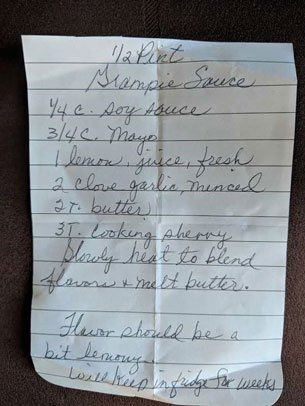 1/2 Pint
Grampie Sauce
1/4 c. soy sauce
3/4 c. Mayo
1 lemon, juice, fresh
2 clove garlic, minced
2T. butter
3T. cooking sherry
Slowly heat to blend
flavors & melt butter.
Flavor should be a
bit lemony.
Will keep in fridge for weeks